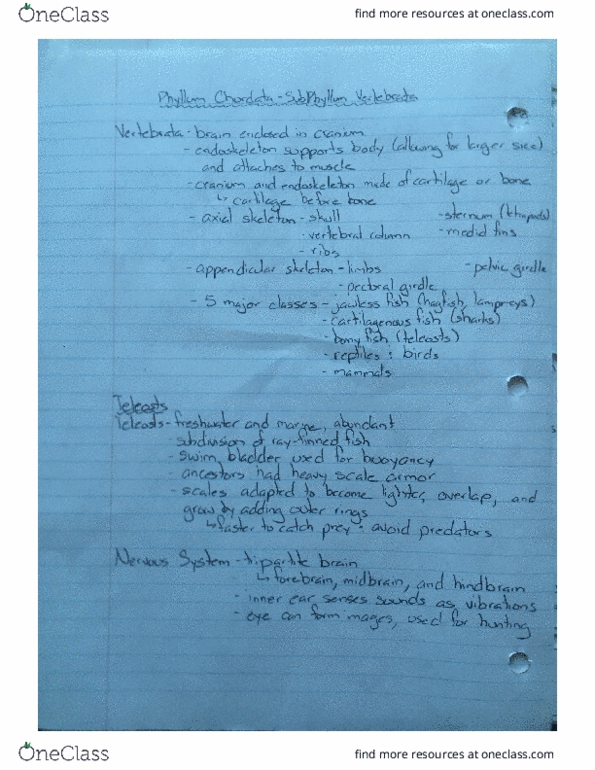 OneClass
find more resources at oneclass.com
Phyllum Chordata - SubPhyllum Vertebrata
Vertebrata - brain enclosed in cranium
- endoskeleton supports body (allowing for larger size)
and attaches to muscle
- cranium and endoskeleton made of cartilage or bone
↳ cartilage before bone
- axial skeleton - skull - sternum (tetrapods)
- vertebral column - medid fins
- ribs
- appendicular skeleton - limbs - pelvic girdle
- pectoral girdle
- 5 major classes - jawless fish (hagfish, lampreys)
- cartilagenous fish (sharks)
- bony fish (teleosts)
- reptiles & birds
- mammals
Teleosts
Teleosts - freshwater and marine, abundant
- subdivision of ray-finned fish
- swim bladder used for buoyancy
- ancestors had heavy scale armor
- scales adapted to become lighter, overlap, and
grow by adding outer rings
↳ faster to catch prey & avoid predators
Nervous System - tripartite brain
↳ forebrain, midbrain, and hindbrain
- inner ear senses sounds as vibrations
- eye can form images, used for hunting
OneClass
find more resources at oneclass.com